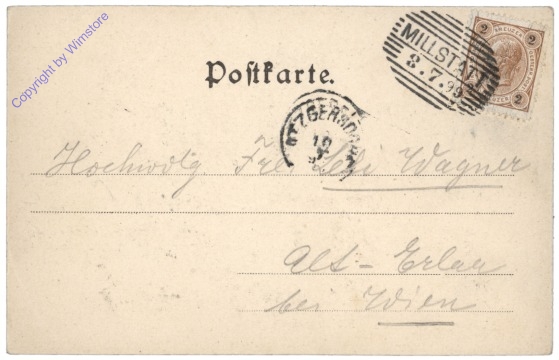 Copyright by Wimstore
Postkarte.
MILLSTATT
3.7.99
2 KREUZER 2
ATZGERSDORF
10
Hochwolg Frl Lexi Wagner
Alt-Erlaa
bei Wien